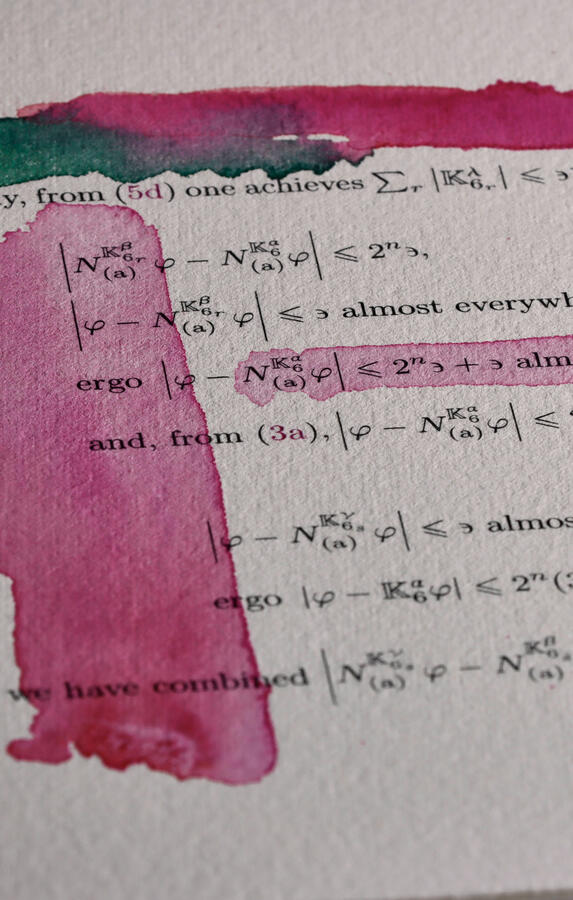 y, from (5d) one achieves ∑ᵣ |𝕂^λ_{6ᵣ}| ⩽ ϶
|N^{𝕂^β_{6ᵣ}}_{(a)} φ − N^{𝕂^α_6}_{(a)} φ| ⩽ 2ⁿ϶,
|φ − N^{𝕂^β_{6ᵣ}}_{(a)} φ| ⩽ ϶ almost everywh
ergo |φ − N^{𝕂^α_6}_{(a)} φ| ⩽ 2ⁿ϶ + ϶ alm
and, from (3a), |φ − N^{𝕂^α_6}_{(a)} φ| ⩽
|φ − N^{𝕂^γ_{6ₛ}}_{(a)} φ| ⩽ ϶ almos
ergo |φ − 𝕂^α_6 φ| ⩽ 2ⁿ(3
we have combined |N^{𝕂^γ_{6ₛ}}_{(a)} φ − N^{𝕂^β_{6ₛ}}_{(a)}